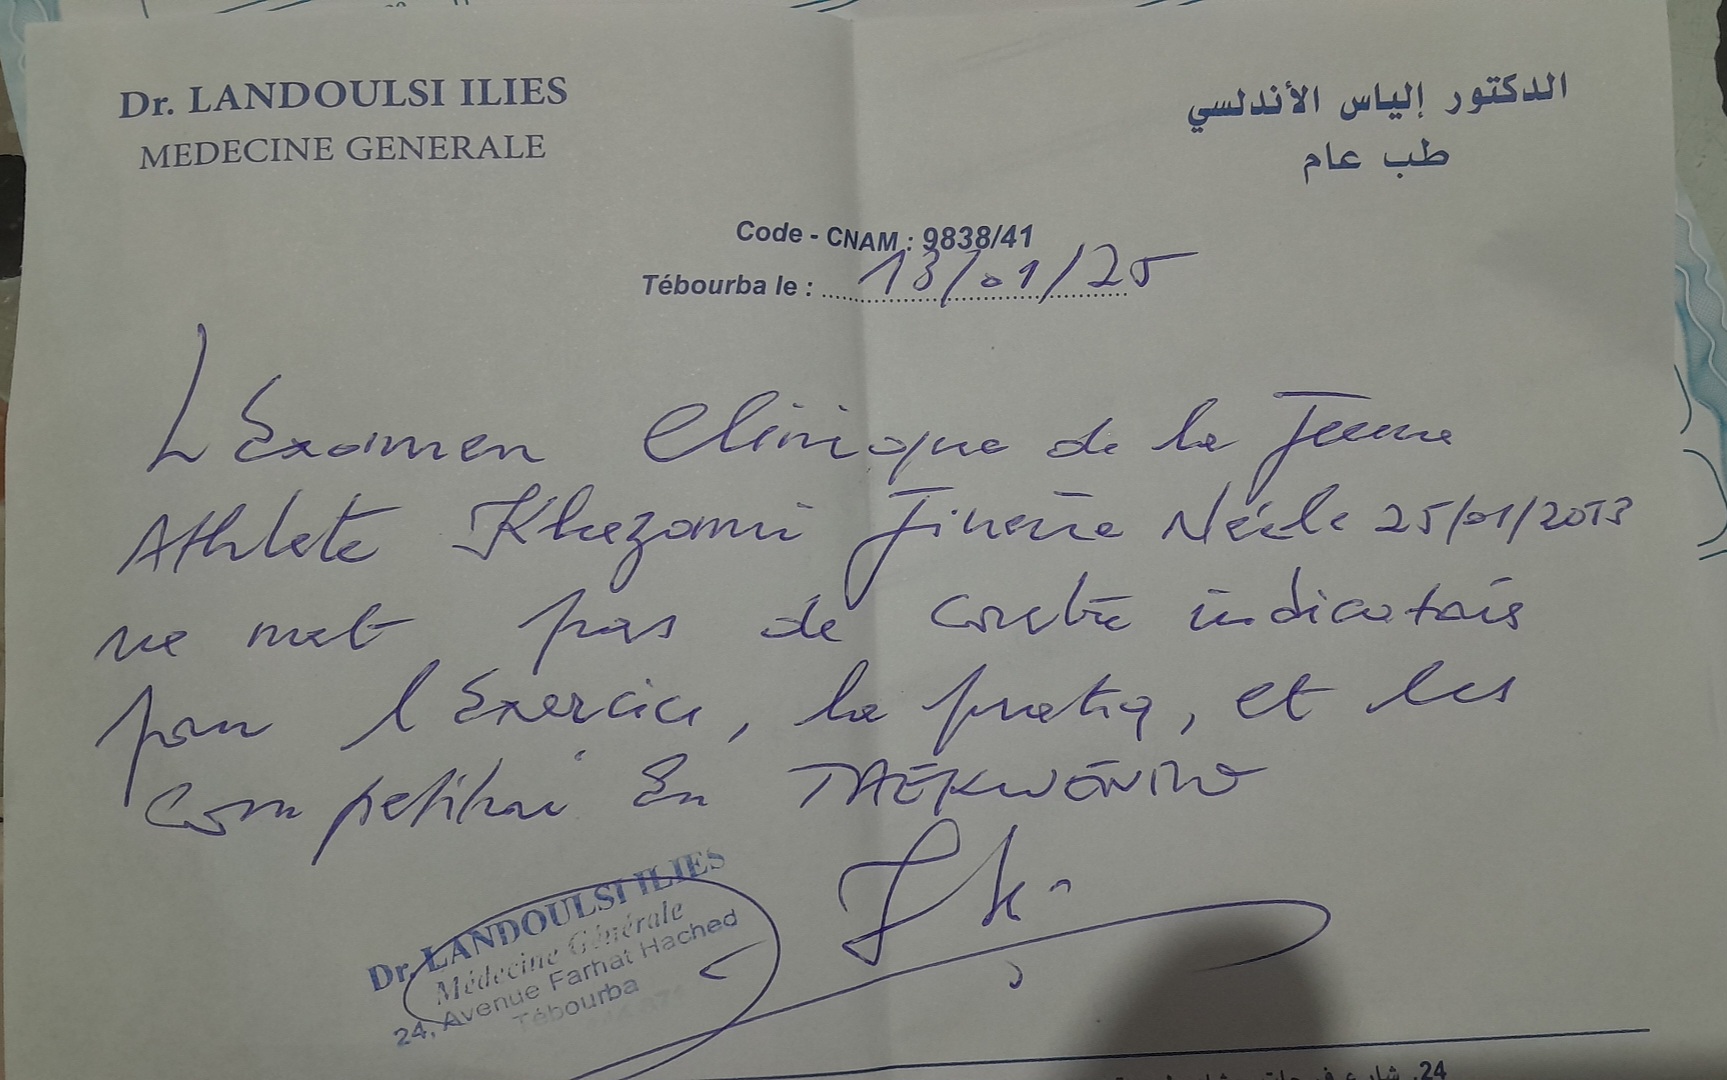 Dr. LANDOULSI ILIES
MEDECINE GENERALE
الدكتور إلياس الأندلسي
طب عام
Code - CNAM : 9838/41
Tébourba le : 13/01/25
L'Examen Clinique de la Jeune
Athlete Khezami Née le 25/01/2013
ne met pas de contre indications
pour l'Exercice, la pratiq, et les
Competition En TAEKWONDO
Dr. LANDOULSI ILIES
Médecine Générale
24, Avenue Farhat Hached
Tébourba
24, شارع فرحات